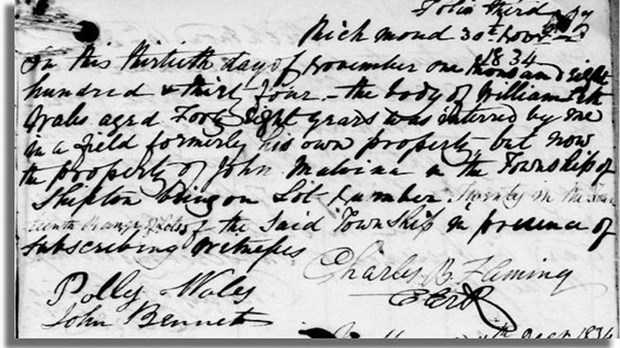 Folio third
Richmond 30th Novr
1834
On this thirtieth day of November one thousand eight
hundred & thirt four - the body of William
Wales aged Forty Eight years was interred by me
in a field formerly his own property but now
the property of John Malvina in the Township of
Shipton being on Lot Number Twenty in the
of the said Township in presence of
subscribing witnesses
Charles B. Fleming
Polly Wales
John Bennett